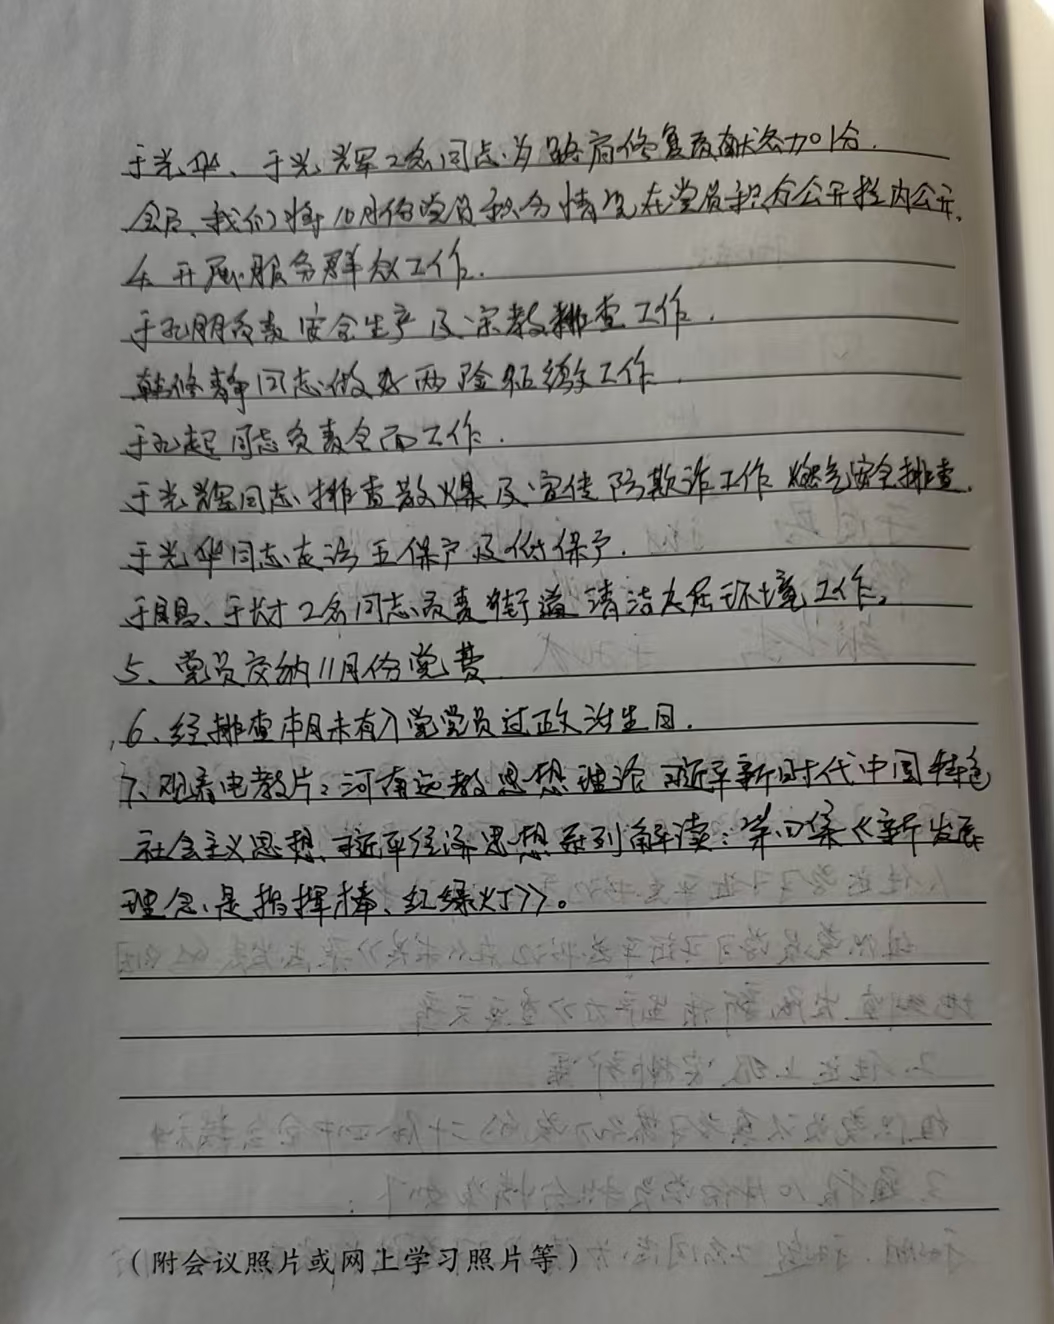 于光华、于光辉2名同志为路肩修复贡献各加1分.
会后、我们将10月份党员积分情况在党员积分公开栏内公开.
4. 开展服务群众工作.
于孔朋负责安全生产及宗教排查工作.
韩修静同志做好两险征缴工作.
于孔起同志负责全面工作.
于光辉同志排查散煤及宣传防欺诈工作 燃气安全排查.
于光华同志走访五保户及低保户.
于良、于长才2名同志负责街道清洁人居环境工作.
5、党员交纳11月份党费
6、经排查本月未有入党党员过政治生日.
7、观看电教片:河南远教思想理论 习近平新时代中国特色
社会主义思想、习近平经济思想系列解读:第四集《新发展
理念是指挥棒、红绿灯》。
(附会议照片或网上学习照片等)